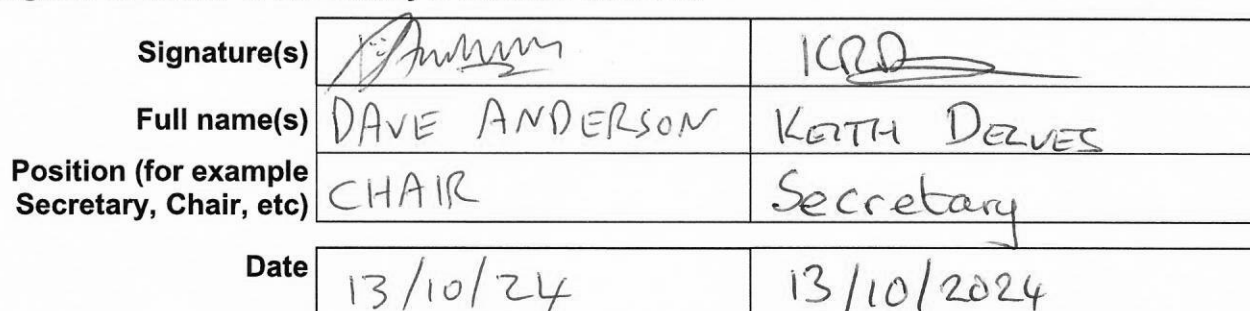 Signature(s)
Full name(s) DAVE ANDERSON KEITH DELVES
Position (for example
Secretary, Chair, etc) CHAIR Secretary
Date 13/10/24 13/10/2024